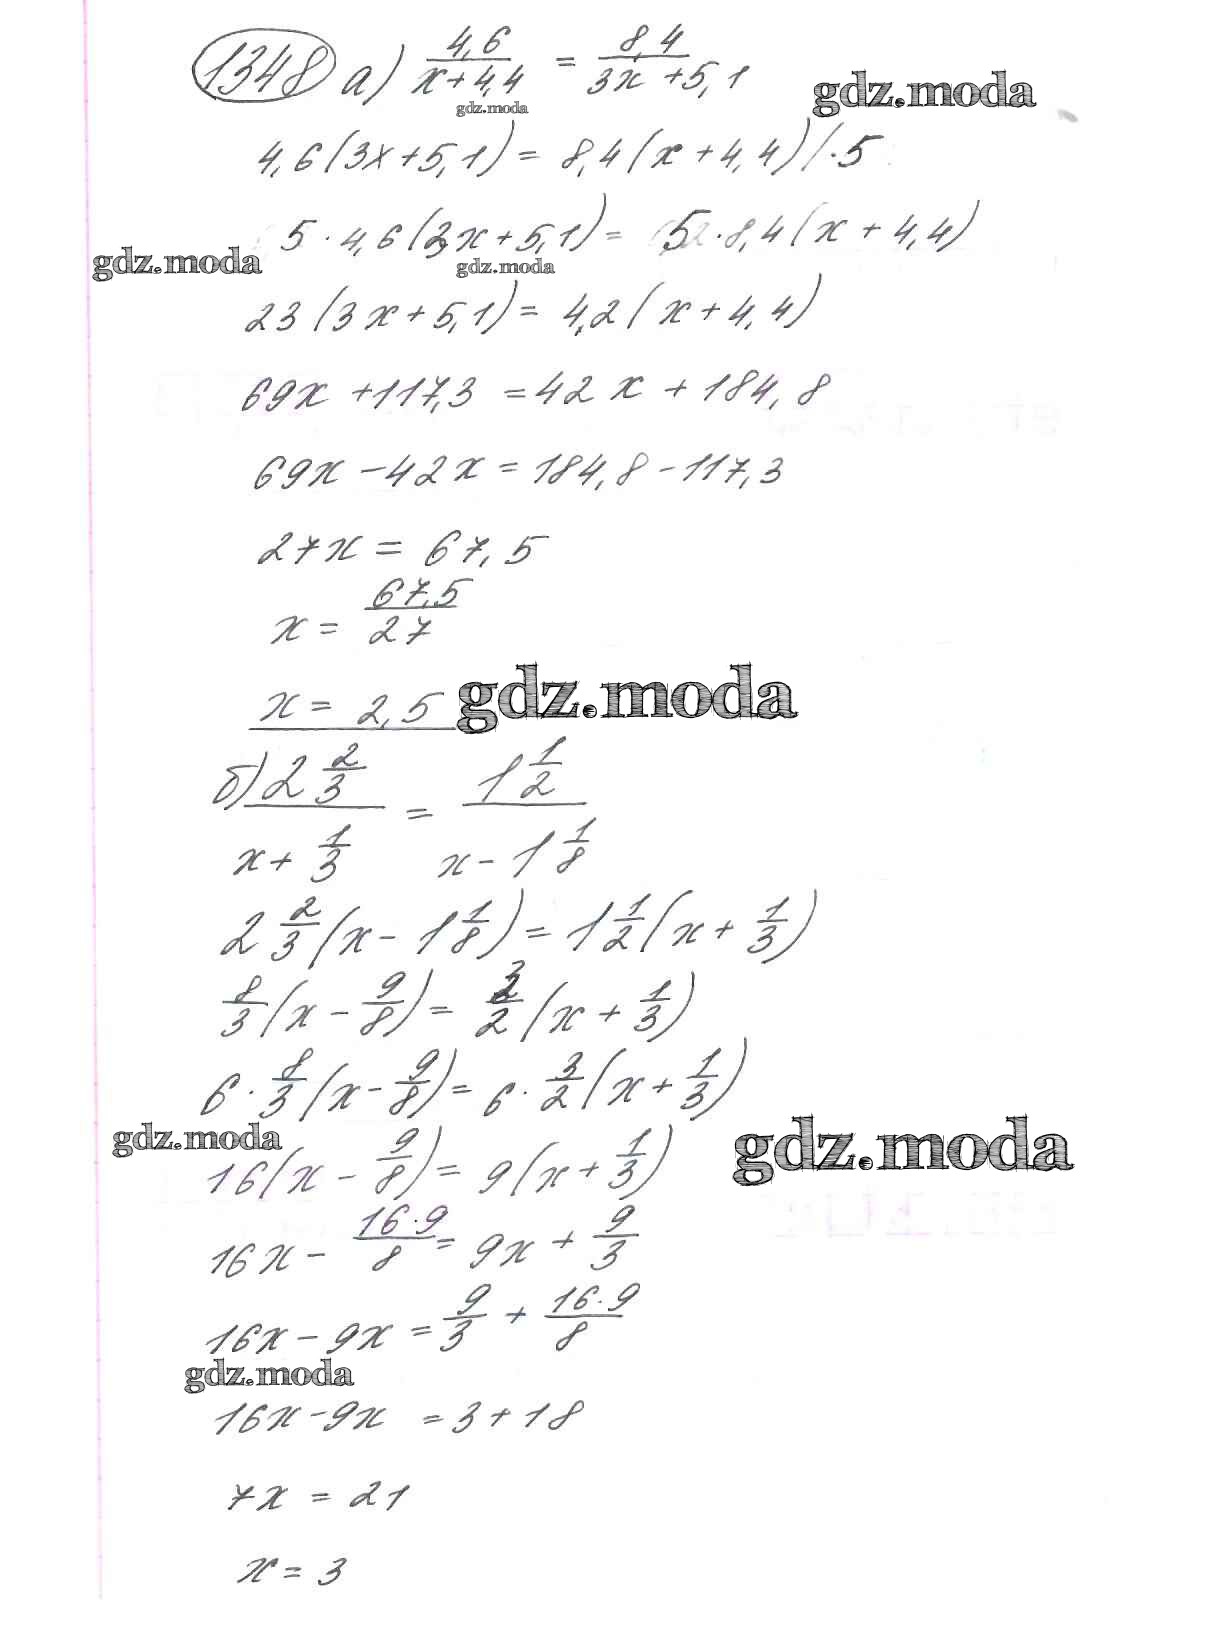 1348 а) 4,6/(x+4,4) = 8,4/(3x+5,1)
gdz.moda
gdz.moda
4,6(3x+5,1)= 8,4(x+4,4)/·5
5·4,6(3x+5,1)= 5·8,4(x+4,4)
gdz.moda
gdz.moda
23(3x+5,1)= 4,2(x+4,4)
69x+117,3 =42x+184,8
69x-42x=184,8-117,3
27x = 67,5
x= 67,5/27
x= 2,5
gdz.moda
б) 2 2/3/(x+1/3) = 1 1/2/(x-1 1/8)
2 2/3(x-1 1/8)=1 1/2(x+1/3)
8/3(x-9/8)= 3/2(x+1/3)
6·8/3(x-9/8)=6·3/2(x+1/3)
gdz.moda
gdz.moda
16(x-9/8)= 9(x+1/3)
16x- 16·9/8= 9x+9/3
16x-9x=9/3+16·9/8
gdz.moda
16x-9x =3+18
7x = 21
x= 3